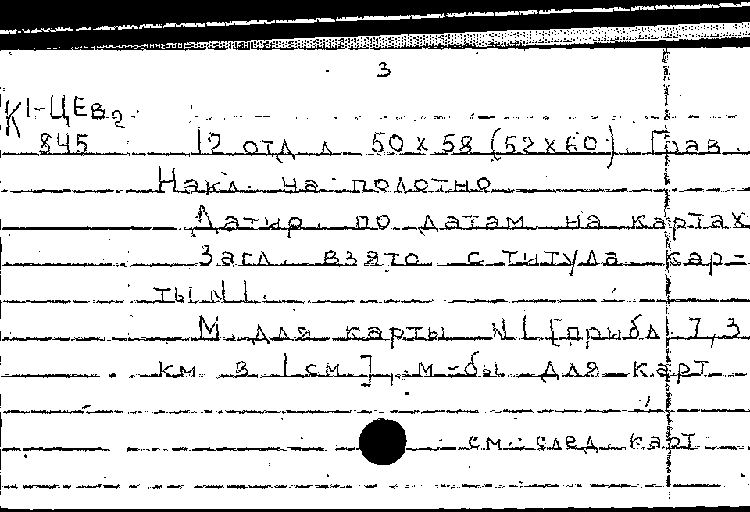 3
К1-ЦЕв2
845 12 отд л 50х58 (52х60). Грав.
Накл. на полотно
Датир. по датам на картах
Загл. взято с титула кар-
ты №1.
М. для карты №1 [прибл 7,3
км в 1 см], м-бы для карт
см. след. карт